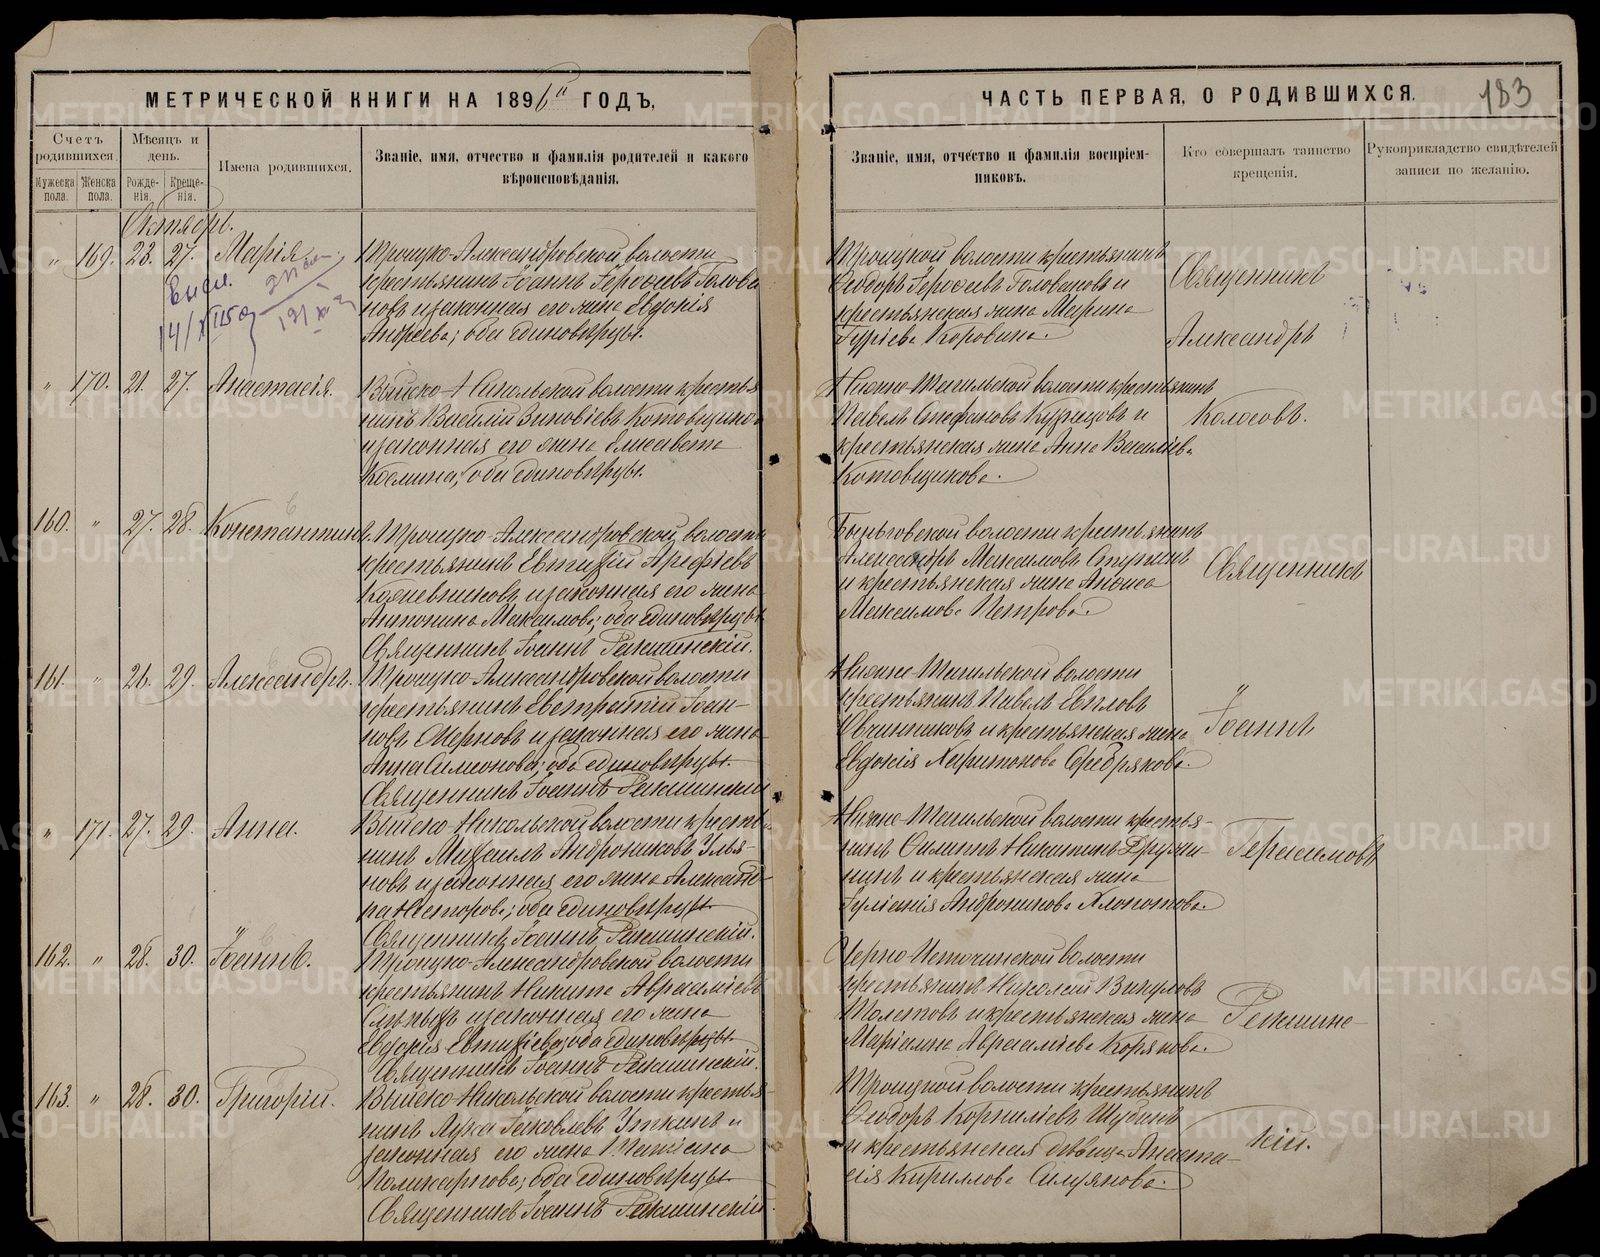 МЕТРИЧЕСКОЙ КНИГИ НА 1896й ГОДЪ,
Счетъ родившихся.
Мужеска пола.
Женска пола.
Мѣсяцъ и день.
Рожде-
нія.
Креще-
нія.
Имена родившихся.
Званіе, имя, отчество и фамилія родителей и какого
вѣроисповѣданія.
Октябрь.
" 169. 23. 27. Марія.
Троицко-Александровской волости
крестьянинъ Іоаннъ Іерофеевъ Голова
новъ и законная его жена Евдокія
Андреева; оба единовѣрцы.
14/XII 15
" 170. 21. 27. Анастасія.
Выйско-Никольской волости крестья
нинъ Василій Зиновіевъ Котовщиковъ
и законная его жена Елисавета
Космина; оба единовѣрцы.
160. " 27. 28. Константинъ.
Троицко-Александровской волости
крестьянинъ Евтихій Арефіевъ
и законная его жена
Антонина Максимова; оба единовѣрцы.
Священникъ Іоаннъ
161. " 26. 29. Александръ.
Троицко-Александровской волости
крестьянинъ Евстратій Іоан-
новъ и законная его жена
Анна Симеонова; оба единовѣрцы.
Священникъ Іоаннъ
" 171. 27. 29. Анна.
Выйско-Никольской волости крестья-
нинъ Михаилъ Андрониковъ Улья-
новъ и законная его жена Александ-
ра Несторова; оба единовѣрцы.
Священникъ Іоаннъ
162. " 28. 30. Іоаннъ.
Троицко-Александровской волости
крестьянинъ Никита Аврааміевъ
и законная его жена
Евдокія Евтихіева; оба единовѣрцы.
Священникъ Іоаннъ
163. " 28. 30. Григорій.
Выйско-Никольской волости крестья-
нинъ Лука Іаковлевъ Уткинъ и
законная его жена Татіана
Поликарпова; оба единовѣрцы.
Священникъ Іоаннъ
ЧАСТЬ ПЕРВАЯ, О РОДИВШИХСЯ.
183
Званіе, имя, отчество и фамилія воспріем-
никовъ.
Кто совершалъ таинство
крещенія.
Рукоприкладство свидѣтелей
записи по желанію.
Троицкой волости крестьянинъ
Ѳеодоръ Іерофеевъ Головановъ и
крестьянская жена Марина
Гуріева Коровина.
Священникъ
Александръ
Нижне-Тагильской волости крестьянинъ
Павелъ Стефановъ Кузнецовъ и
крестьянская жена Анна Василіева
Котовщикова.
Колосовъ.
Быньговской волости крестьянинъ
Александръ Максимовъ Ступинъ
и крестьянская жена
Максимова Петрова.
Священникъ
Нижне-Тагильской волости
крестьянинъ Павелъ Евпловъ
Овчинниковъ и крестьянская жена
Евдокія Харитонова Серебрякова.
"
Іоаннъ
Нижне-Тагильской волости крестья-
нинъ Филиппъ Никитинъ Дружи-
нинъ и крестьянская жена
Іуліанія Андроникова Хлопотова.
Герасимовъ
Черно-Источинской волости
крестьянинъ Николай Викуловъ
Толстовъ и крестьянская жена
Маріамна Авраамиева Корякова.
Троицкой волости крестьянинъ
Ѳеодоръ Корниліевъ Шубинъ
и крестьянская дѣвица Анаста-
сія Кириллова
кій.
METRIKI.GASO-URAL.RU